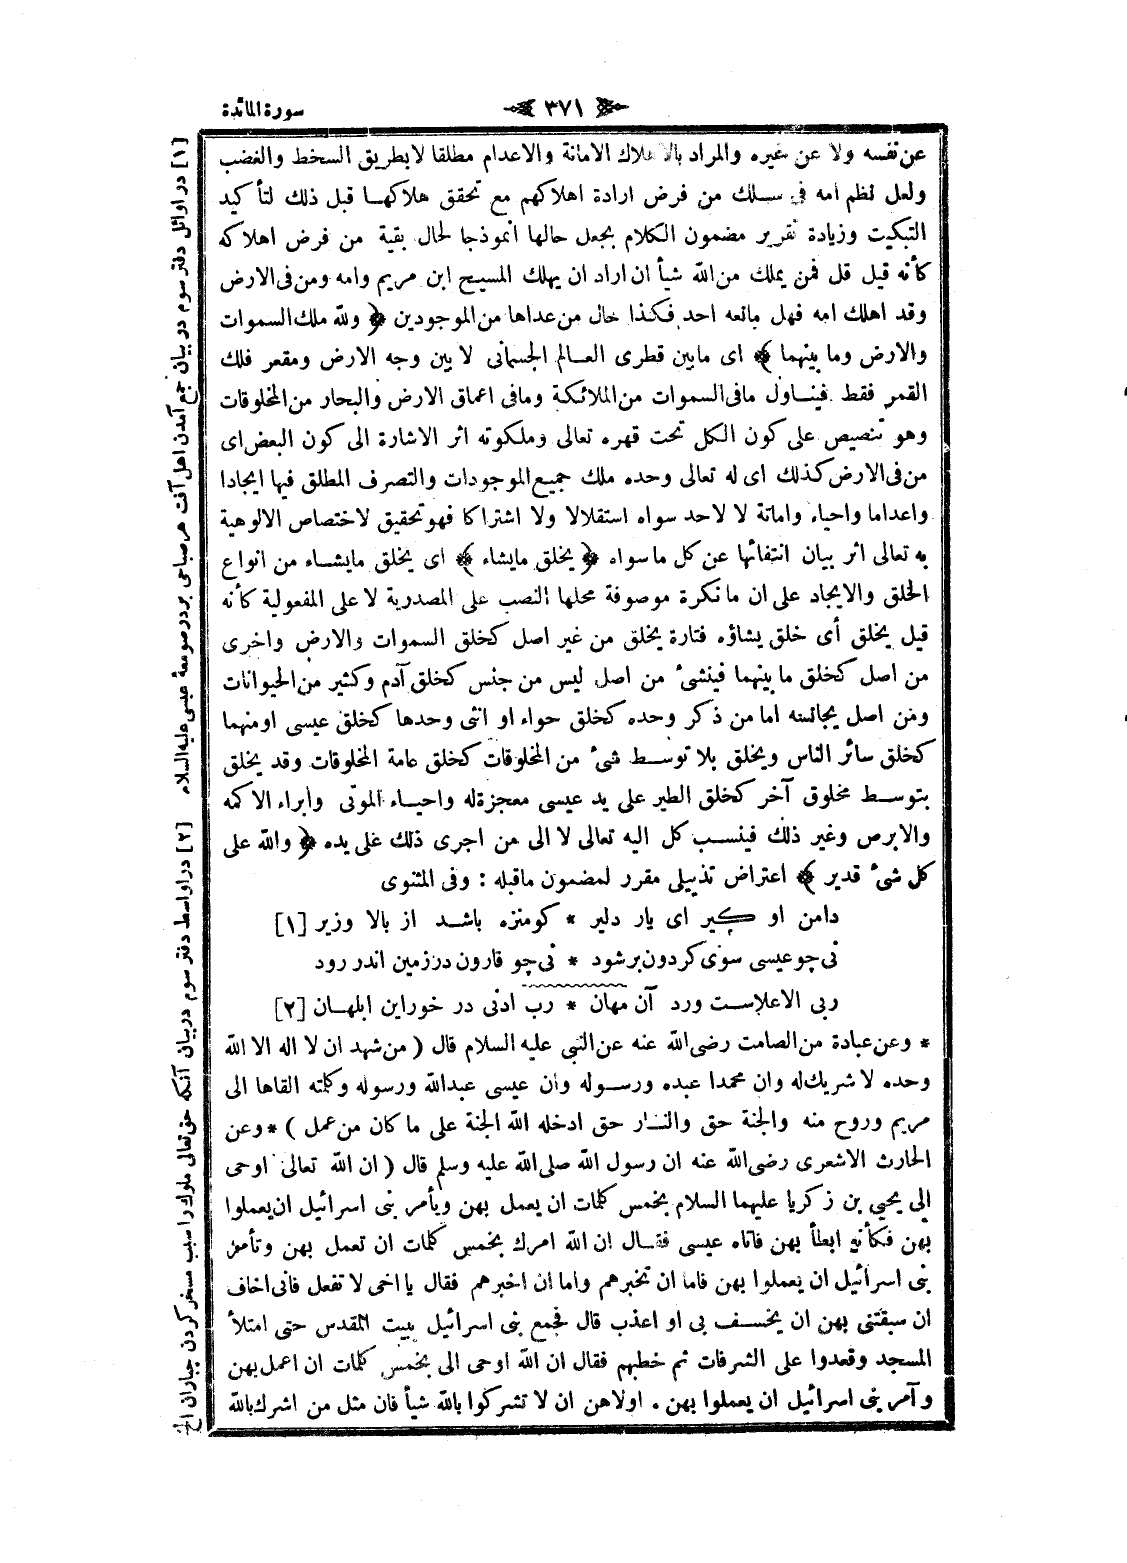 سورة المائدة
٣٧١
عن نفسه ولا عن غيره والمراد بالاهلاك الاماتة والاعدام مطلقا لا بطريق السخط والغضب
ولعل نظم امه فى سلك من فرض ارادة اهلاكهم مع تحقق هلاكها قبل ذلك لتأكيد
التبكيت وزيادة تقرير مضمون الكلام بجعل حالها انموذجا لحال بقية من فرض اهلاكه
كأنه قيل قل فمن يملك من الله شيأ ان اراد ان يهلك المسيح ابن مريم وامه ومن فى الارض
وقد اهلك امه فهل مانعه احد فكذا حال من عداها من الموجودين ﴿ ولله ملك السموات
والارض وما بينهما ﴾ اى مابين قطرى العالم الجسمانى لا بين وجه الارض ومقعر فلك
القمر فقط فيتناول مافى السموات من الملائكة ومافى اعماق الارض والبحار من المخلوقات
وهو تنصيص على كون الكل تحت قهره تعالى وملكوته اثر الاشارة الى كون البعض اى
من فى الارض كذلك اى له تعالى وحده ملك جميع الموجودات والتصرف المطلق فيها ايجادا
واعداما واحياء واماتة لا لاحد سواه استقلالا ولا اشتراكا فهو تحقيق لاختصاص الالوهية
به تعالى اثر بيان انتفائها عن كل ما سواه ﴿ يخلق مايشاء ﴾ اى يخلق مايشاء من انواع
الخلق والايجاد على ان ما نكرة موصوفة محلها النصب على المصدرية لا على المفعولية كأنه
قيل يخلق أى خلق يشاؤه فتارة يخلق من غير اصل كخلق السموات والارض واخرى
من اصل كخلق ما بينهما فينشئ من اصل ليس من جنس كخلق آدم وكثير من الحيوانات
ومن اصل يجانسه اما من ذكر وحده كخلق حواء او انثى وحدها كخلق عيسى اومنهما
كخلق سائر الناس ويخلق بلا توسط شئ من المخلوقات كخلق عامة المخلوقات وقد يخلق
بتوسط مخلوق آخر كخلق الطير على يد عيسى معجزة له واحياء الموتى وابراء الاكمه
والابرص وغير ذلك فينسب كل اليه تعالى لا الى من اجرى ذلك على يده ﴿ والله على
كل شئ قدير ﴾ اعتراض تذييلى مقرر لمضمون ماقبله : وفى المثنوى
دامن او گير اى يار دلير * كو منزه باشد از بالا وزير [١]
نى چو عيسى سوى كردون بر شود * نى چو قارون در زمين اندر رود
ربى الاعلاست ورد آن مهان * رب ادنى در خور اين ابلهان [٢]
* وعن عبادة من الصامت رضى الله عنه عن النبى عليه السلام قال ( من شهد ان لا اله الا الله
وحده لا شريك له وان محمدا عبده ورسوله وان عيسى عبد الله ورسوله وكلمته القاها الى
مريم وروح منه والجنة حق والنار حق ادخله الله الجنة على ما كان من عمل ) * وعن
الحارث الاشعرى رضى الله عنه ان رسول الله صلى الله عليه وسلم قال ( ان الله تعالى اوحى
الى يحيى بن زكريا عليهما السلام بخمس كلمات ان يعمل بهن ويأمر بنى اسرائيل ان يعملوا
بهن فكأنه ابطأ بهن فاتاه عيسى فقال ان الله امرك بخمس كلمات ان تعمل بهن وتأمر
بنى اسرائيل ان يعملوا بهن فاما ان تخبرهم واما ان اخبرهم فقال يا اخى لا تفعل فانى اخاف
ان سبقتنى بهن ان يخسف بى او اعذب قال فجمع بنى اسرائيل ببيت المقدس حتى امتلأ
المسجد وقعدوا على الشرفات ثم خطبهم فقال ان الله اوحى الى بخمس كلمات ان اعمل بهن
وآمر بنى اسرائيل ان يعملوا بهن . اولاهن ان لا تشركوا بالله شيأ فان مثل من اشرك بالله
[١] در اوائل دفتر سوم در بيان جمع آمدن اهل آفت هر صباحى بر در صومعۀ عيسى عليه السلام
[٢] در اواسط دفتر سوم در بيان آنكه حق تعالى ملوك را سبب مسخر كردن جباران الخ